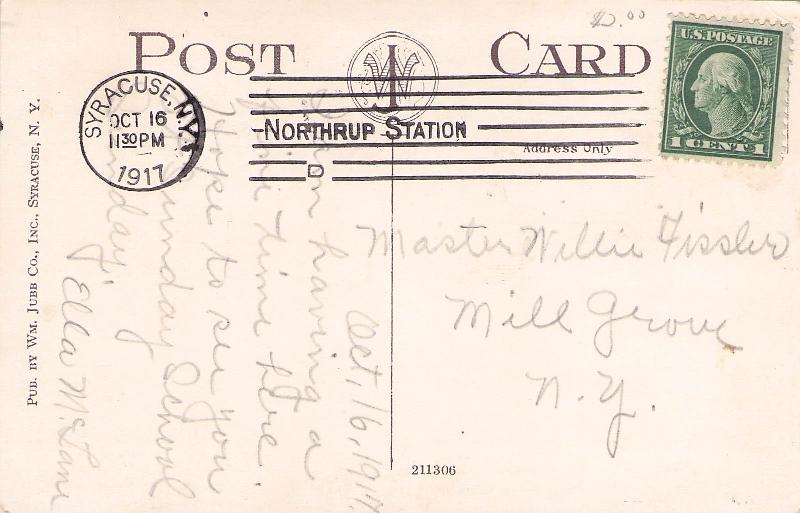 $2.00
POST CARD
U.S. POSTAGE
1 CENT 1
SYRACUSE, N.Y.
OCT 16
11 30 PM
1917
NORTHRUP STATION
D
Address Only
Oct, 16, 1917
having a
fine time here.
Hope to see you
Sunday School
Sunday
Ella McLane
Master Willie Fissler
Mill Grove
N.Y.
211306
PUB. BY WM. JUBB CO., INC., SYRACUSE, N. Y.